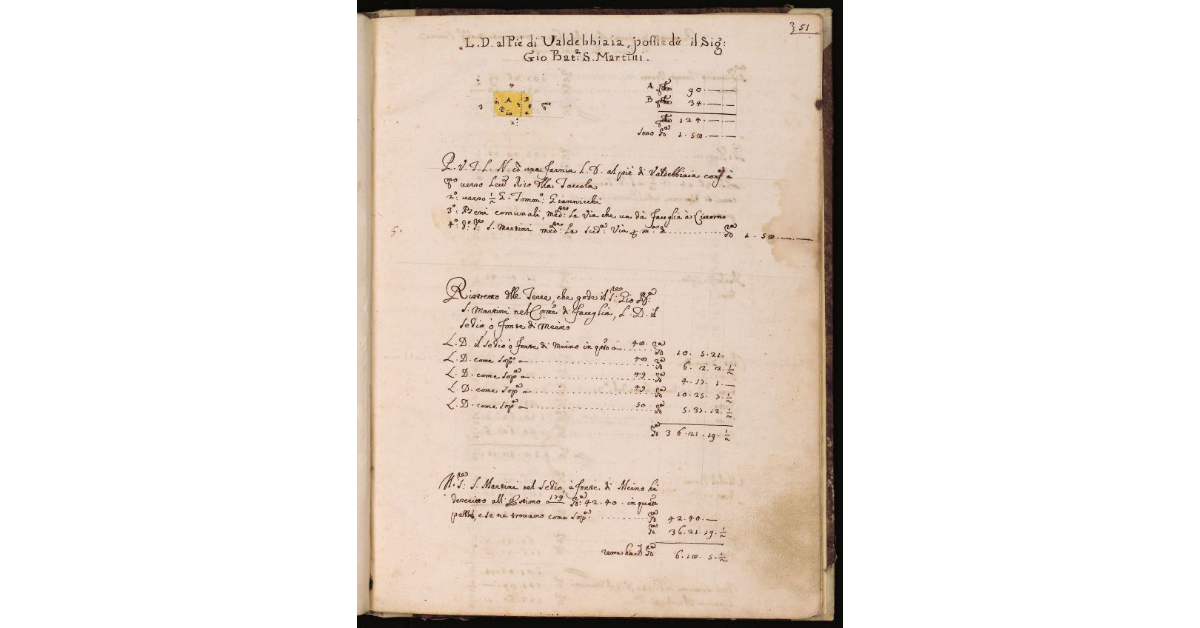 351
L. D. al Piè di Valdebbiaia, possiede il Sig:
Gio Batt:ª S. Martini.
4
A 90
B 34
3 A B
124
2:
sono 1 . 50
P. V. T. L. N. è una L. D. al piè di Valdebbiaia conf: à
p:mo verso Lev:te Rio della
2:º verso ½ G. Tomm:º Giannicchi
3:º Beni comunali, med:te la via che va da Fauglia à
4:º d:º S:r S. Martini med:te la sud:ª Via p m:º dì 1 . 50
5.
Ristretto delle Terre, che gode il S:re Gio B:ª
S. Martini nel Com:e di Fauglia, L. D. il
Sedio, ò fonte di Meino
L. D. il Sedio, ò fonte di Meino in q:sto à 48 10 . 5 . 21
L. D. come Sop:ª 48 6 . 12 . 12 . ½
L. D. come Sop:ª 49 4 . 17 . 1
L. D. come Sop:ª 49 10 . 25 . 7 . ½
L. D. come Sop:ª 50 5 . 27 . 12 . ½
36 . 21 . 19 . ½
Il S:re S. Martini nel Sedio, ò fonte di Meino hà
descritto all' Estimo 179 42 . 40 . in quattro
pezzi, e se ne trovano come Sop:ª 42 . 40
36 . 21 . 19 . ½
6 . 18 . 5 . ½